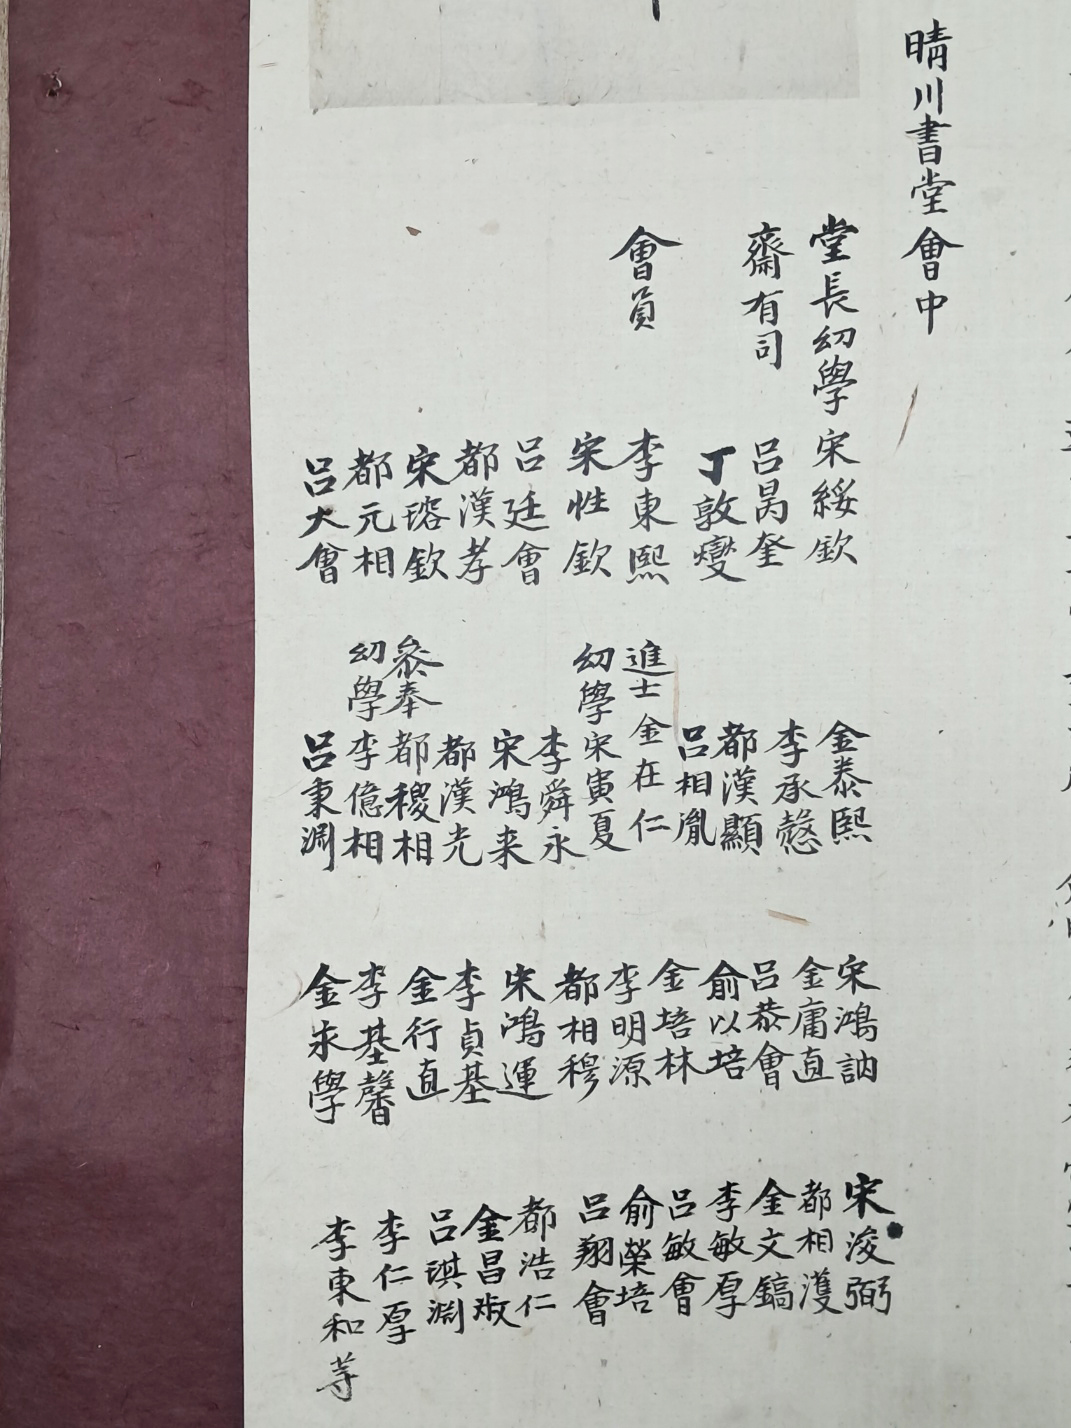 晴川書堂會中
堂長幼學宋綏欽
齋有司
呂昺奎
丁敦燮
會員
李東熙
宋性欽
呂廷會
都漢孝
宋瑢欽
都元相
呂大會
金泰熙
李承懿
都漢顯
呂相胤
進士金在仁
幼學宋寅夏
李舜永
宋鴻來
都漢光
參奉都稷相
幼學李億相
呂秉淵
宋鴻訥
金庸直
呂恭會
俞以培
金培林
李明源
都相穆
宋鴻運
李貞基
金行直
李基馨
金學
宋浚弼
都相頀
金文鎬
李敏厚
呂敏會
俞榮培
呂翔會
都浩仁
金昌淑
呂琪淵
李仁厚
李東和等